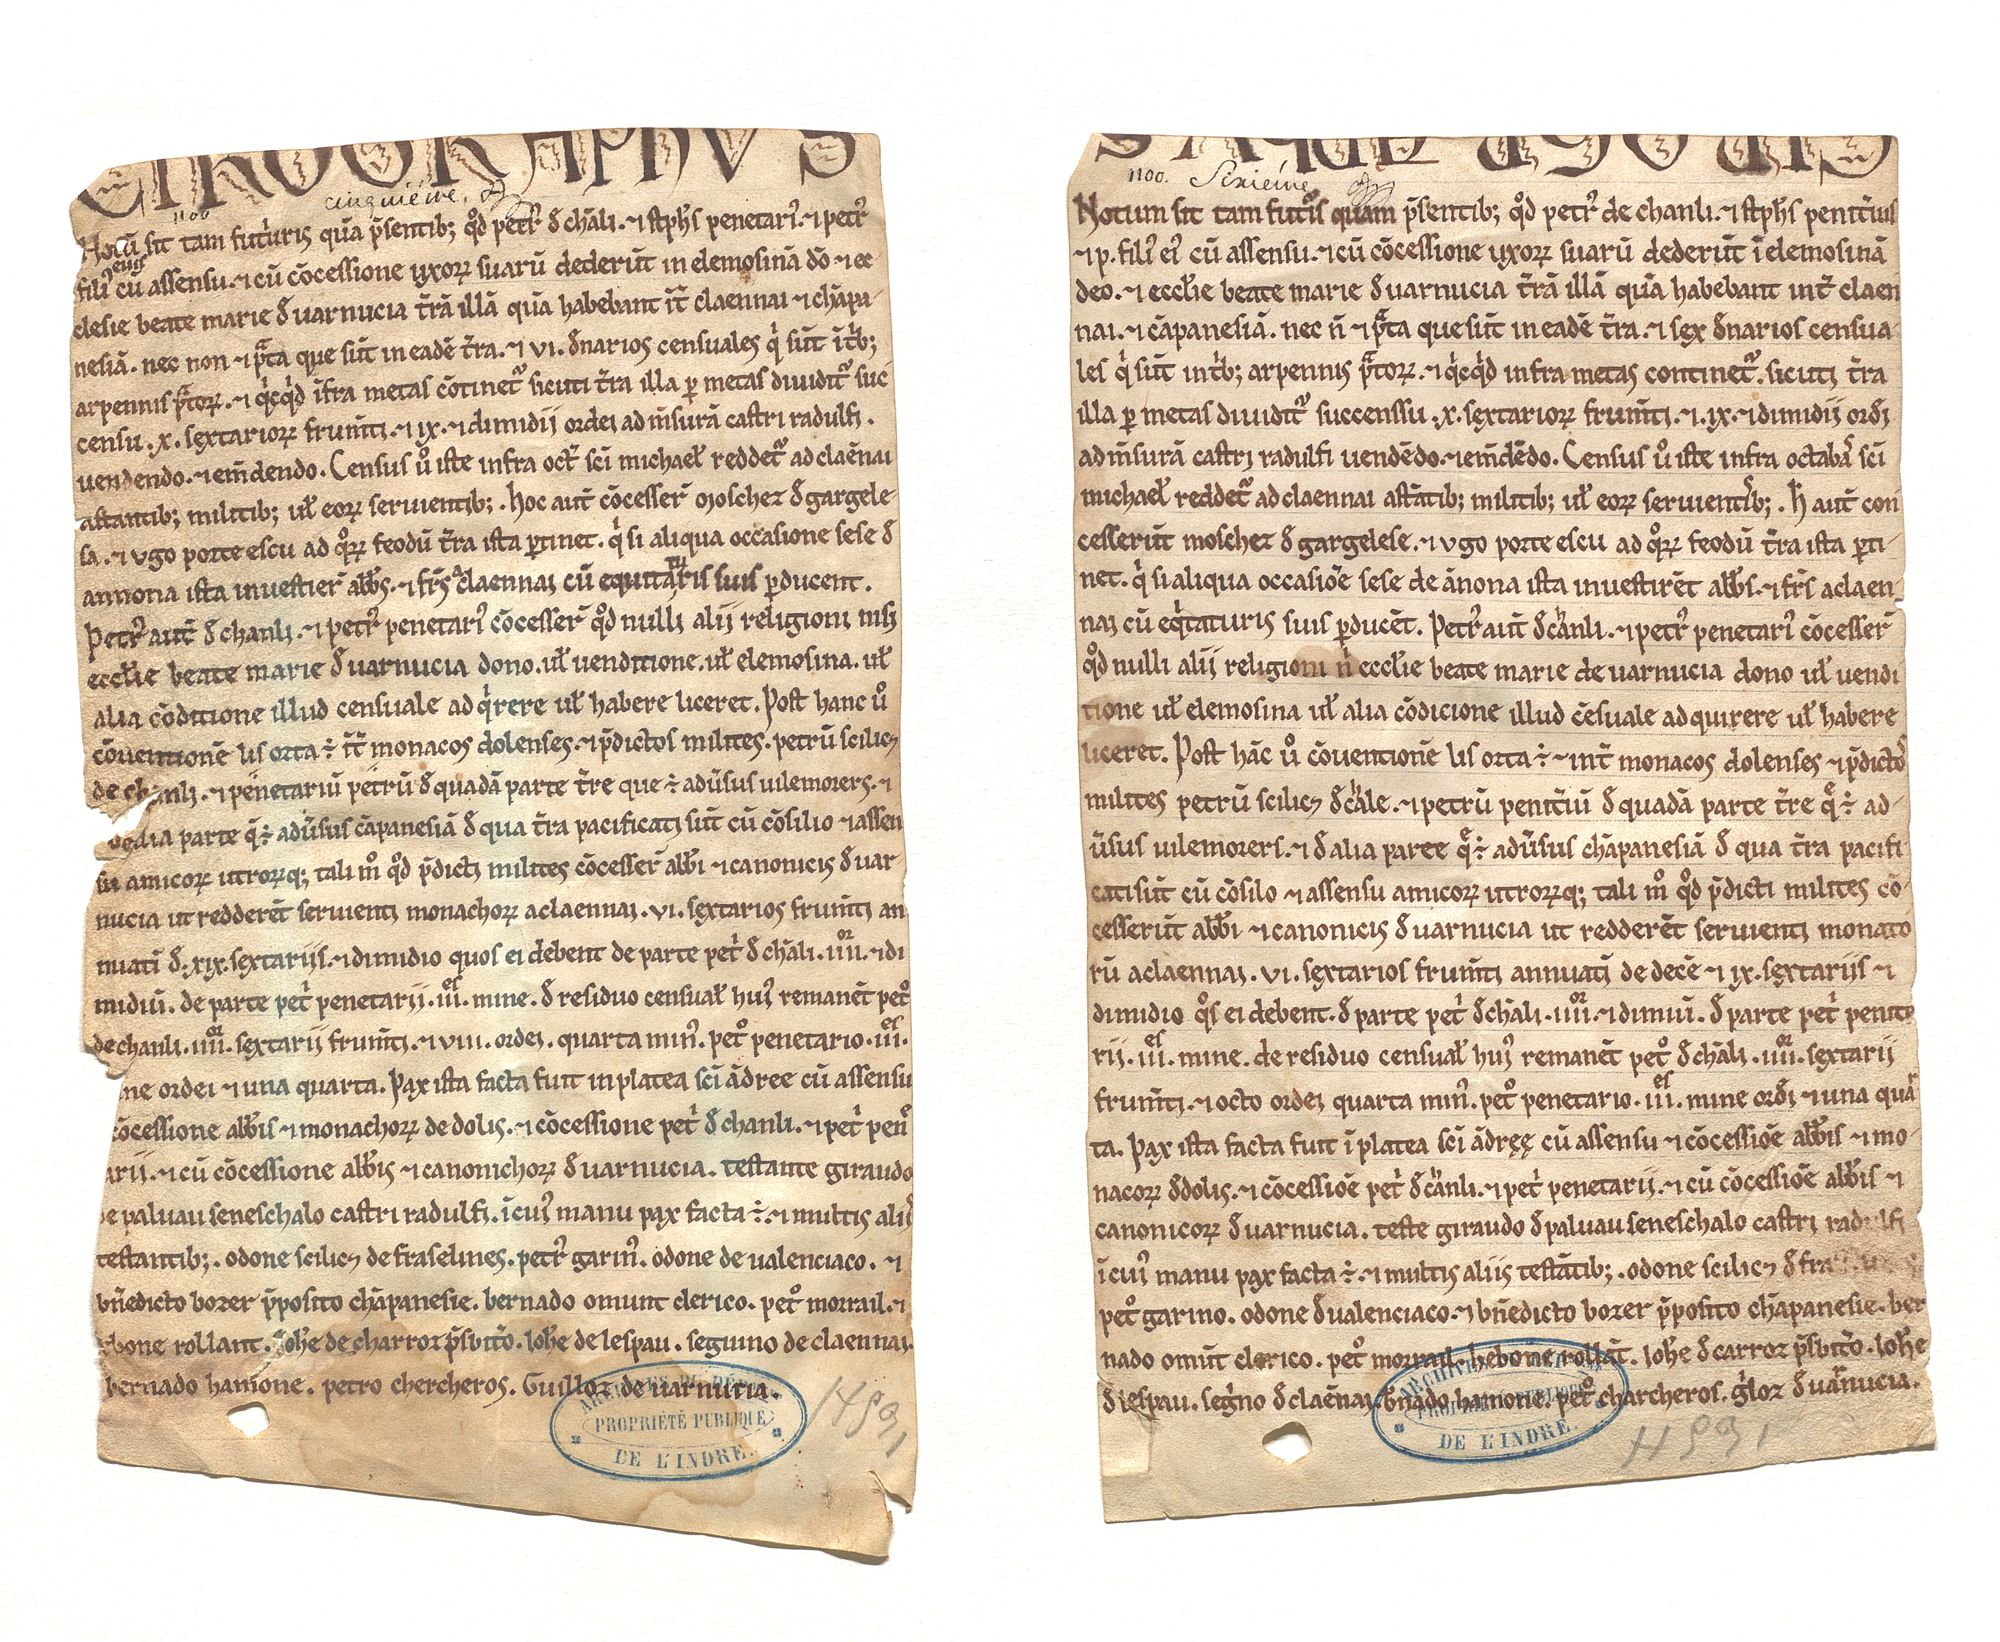 CIROGRAPHVS
1100 cinquiéme.
Notū sit tam futuris quā p̄sentib; qd̄ petr' d' chāli. ⁊ stph's penetari'. ⁊ petr'
fili' eius cū assensu. ⁊ cū cōcessione uxoꝝ suarū dederūt in elemosinā dō ⁊ ec
clesie beate marie d' uarnucia t̄rā illā quā habebant īt' claennai ⁊ chāpa-
nesiā. nec non ⁊ p̃ta que sūt in eadē t̄ra. ⁊ vi. d'narios censuales q' sūt īt'b;
arpennis p̃toꝝ. ⁊ q'cq'd īfra metas cōtinet' sicuti t̄ra illa ꝑ metas diuidit' suc
censu .x. sextarioꝝ frum̄ti ⁊ ix. ⁊ dimidii ordei ad m̄surā castri radulfi.
uendendo. ⁊ em̄dendo. Census ů iste infra oct' sci michael' reddet' ad claēnai
astantib; militib; ul' eoꝝ seruientib;. hoc aut̄ cōcesser̄ moschez d' gargele-
sa. ⁊ vgo porte escu ad q°ꝝ feodū t̄ra ista ꝑtinet. q' si aliqua occasione sese d'
annona ista inuestier̄ abb's. ⁊ fr̄s a claennai cū equitaturis suis ꝑducent.
Petr' aut̄ d' chanli. ⁊ petr' penetari' cōcesser̄ qd̄ nulli alii religioni nisi
eccl'ie beate marie d' uarnucia dono. ul' uenditione. ul' elemosina. ul'
alia cōditione illud censuale ad q'rere ul' habere liceret. Post hanc ů
cōuentionē lis orta ÷ īt' monacos dolenses. ⁊ p̄dictos milites. petrū scilic;
de chanli. ⁊ penetariū petrū d' quadā parte t̄re que ÷ adūsus uilemorers. ⁊
parte q̄ ÷ adūsus cāpanesiā d' qua t̄ra pacificati sūt cū cōsilio ⁊ assen
su amicoꝝ utroꝝq; tali m° qd̄ p̄dicti milites cōcesser̄ abb'i ⁊ canonicis d' uar-
nucia ut redderēt seruienti monachoꝝ a claennai. vi. sextarios frum̄ti an
nuatī d' xix. sextariis. ⁊ dimidio quos ei debent de parte pet'i d' chāli. iiii^or. ⁊ di
midiū. de parte pet'i penetarii. iii^es. mine. d' residuo censual' hui' remanēt pet°
de chanli. iiii^or. sextarii frum̄ti. ⁊ viii. ordei. quarta min'. pet° penetario. iii^es.
ne ordei ⁊ una quarta. Pax ista facta fuit in platea sci ādree cū assensu
cōcessione abb'is ⁊ monachoꝝ de dolis. ⁊ cōcessione pet'i d' chanli. ⁊ pet'i pen°
arii. ⁊ cū cōcessione abb'is ⁊ canonichoꝝ d' uarnucia. testante giraudo
e paluau seneschalo castri radulfi. ī cui' manu pax facta ÷. ⁊ multis aliis
testantib;. odone scilic; de fraselines. petr' garin'. odone de ualenciaco. ⁊
bn̄edicto bozer p̄posito chāpanesie. bernado omunt clerico. pet° morrail. ⁊
bone rollant. Ioh'e de charroz p̄sbit'o. Ioh'e de lespau. seguino de claennai.
bernado hamone. petro chercheros. Guilloz de uarnutia.
ARCHIVES DU DÉPART
PROPRIÉTÉ PUBLIQUE
DE L'INDRE.
H 891
1100. Sixiéme
Notum sit tam futuris quam p̄sentib; qd̄ petr' de chanli. ⁊ stph's penit'ius
⁊ p. fili' ei' cū assensu. ⁊ cū cōcessione uxoꝝ suarū dederūt ī elemosinā
deo. ⁊ eccl'ie beate marie d' uarnucia t̄rā illā quā habebant int̄ claen
nai. ⁊ cāpanesiā. nec ñ ⁊ p̃ta que sūt in eadē t̄ra. ⁊ sex d'narios censua-
les q' sūt int'b; arpennis p̃toꝝ. ⁊ q'cq'd infra metas continet'. sicuti t̄ra
illa ꝑ metas diuidit' succenssu .x. sextarioꝝ frum̄ti. ⁊ .ix. ⁊ dimidii ord'i
ad m̄surā castri radulfi uendēdo. ⁊ em̄dēdo. Census ů iste infra octab' sci
michael' reddet' ad claennai astātib; militib; ul' eoꝝ seruientib;. h̄ aut̄ con
cesserūt moschez d' gargelese. ⁊ vgo porte escu ad q°ꝝ feodū t̄ra ista ꝑti-
net. q' si aliqua occasiōe sese de ānona ista inuestirēt abb's. ⁊ fr̄s a claen
nai cū eq'taturis suis ꝑducēt. Petr' aut̄ d' c'anli. ⁊ petr' penetari' cōcesser̄
qd̄ nulli alii religioni n' eccl'ie beate marie de uarnucia dono ul' uendi
tione ul' elemosina ul' alia cōdicione illud cēsuale adquirere ul' habere
liceret. Post hāc ů cōuentionē lis orta ÷ int̄ monacos dolenses ⁊ p̄dictos
milites petrū scilic; d' c'ale. ⁊ petrū penit'iū d' quadā parte t̄re q̄ ÷ ad-
ūsus uilemorers. ⁊ d' alia paree q̄ ÷ adūsus chāpanesiā d' qua t̄ra pacifi-
cati sūt cū cōsilo ⁊ assensu amicoꝝ utroꝝq; tali m° qd̄ p̄dicti milites cō-
cesserūt abb'i ⁊ canonicis d' uarnucia ut redderēt seruienti monaco
rū a claennai. vi. sextarios frum̄ti annuatī de decē ⁊ ix. sextariis ⁊
dimidio q°s ei debent. d' parte pet'i d' chāli. iiii^or. ⁊ dimiū. d' parte pet'i penite
rii. iii^es. mine. de residuo censual' hui' remanēt pet° d' chāli. iiii^or. sextarii
frum̄ti. ⁊ octo ordei quarta min'. pet° penetario. iii^es. mine ord'i ⁊ una quar
ta. Pax ista facta fuit ī platea sci ādręę cū assensu ⁊ cōcessiōe abb'is ⁊ mo-
nacoꝝ d' dolis. ⁊ cōcessiōe pet'i d' c'anli. ⁊ pet'i penetarii. ⁊ cū cōcessiōe abb'is ⁊
canonicoꝝ d' uarnucia. teste giraudo d' paluau seneschalo castri radulfi
ī cui' manu pax facta ÷. ⁊ multis aliis testātib;. odone scilic; d' fra
pet° garino. odone d' ualenciaco. ⁊ bn̄edicto bozer p̄posito chāpanesie. ber
nado omūt clerico. pet° morrail. hebone rollāt. Ioh'e d' carroz p̄sbit'o. Ioh'e
d' lespau. seg'no d' claēnai. b'nado hamone. pet° charcheros. g'loz d' uarnucia.
ARCHIVES
PROPRIÉTÉ PUBLIQUE
DE L'INDRE.
H 891